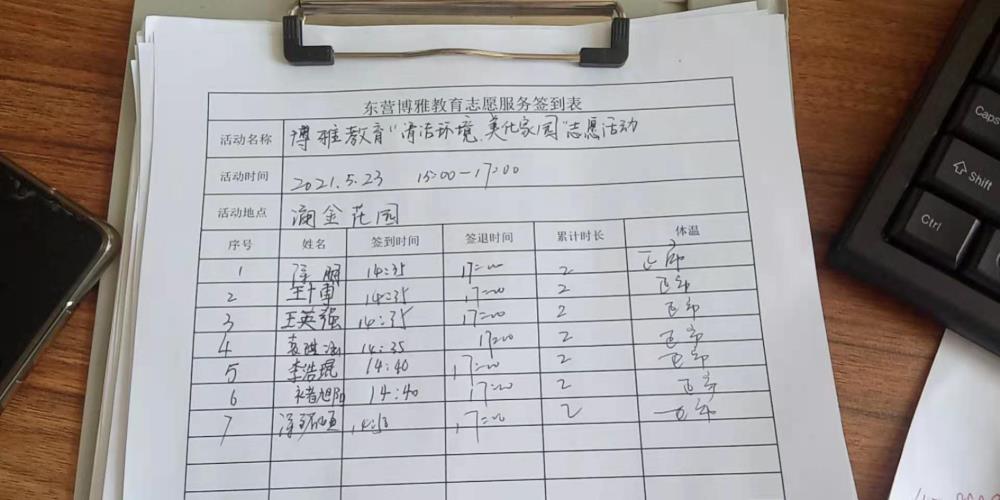 东营博雅教育志愿服务签到表
活动名称 博雅教育“清洁环境、美化家园”志愿活动
活动时间 2021.5.23 15:00-17:00
活动地点 金花园
序号 姓名 签到时间 签退时间 累计时长 体温
1 14:35 17:00 2 正常
2 王博 14:35 17:00 2 正常
3 王英强 14:35 17:00 2 正常
4 14:35 17:00 2 正常
5 李浩琨 14:40 17:00 2 正常
6 褚旭阳 14:40 17:00 2 正常
7 17:00 2 正常
Caps
Shift
Ctrl